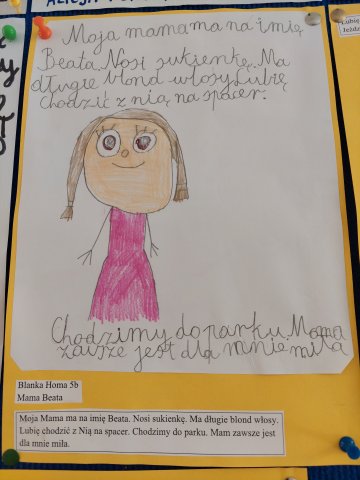 Moja mamama na imię
Beata. Nosi sukienkę. Ma
długie blond włosy. Lubię
chodzić z nią na spacer.
Chodzimy do parku. Mama
zawsze jest dla mnie miła
Blanka Homa 5b
Mama Beata
Moja Mama ma na imię Beata. Nosi sukienkę. Ma długie blond włosy.
Lubię chodzić z Nią na spacer. Chodzimy do parku. Mam zawsze jest
dla mnie miła.
Lubię